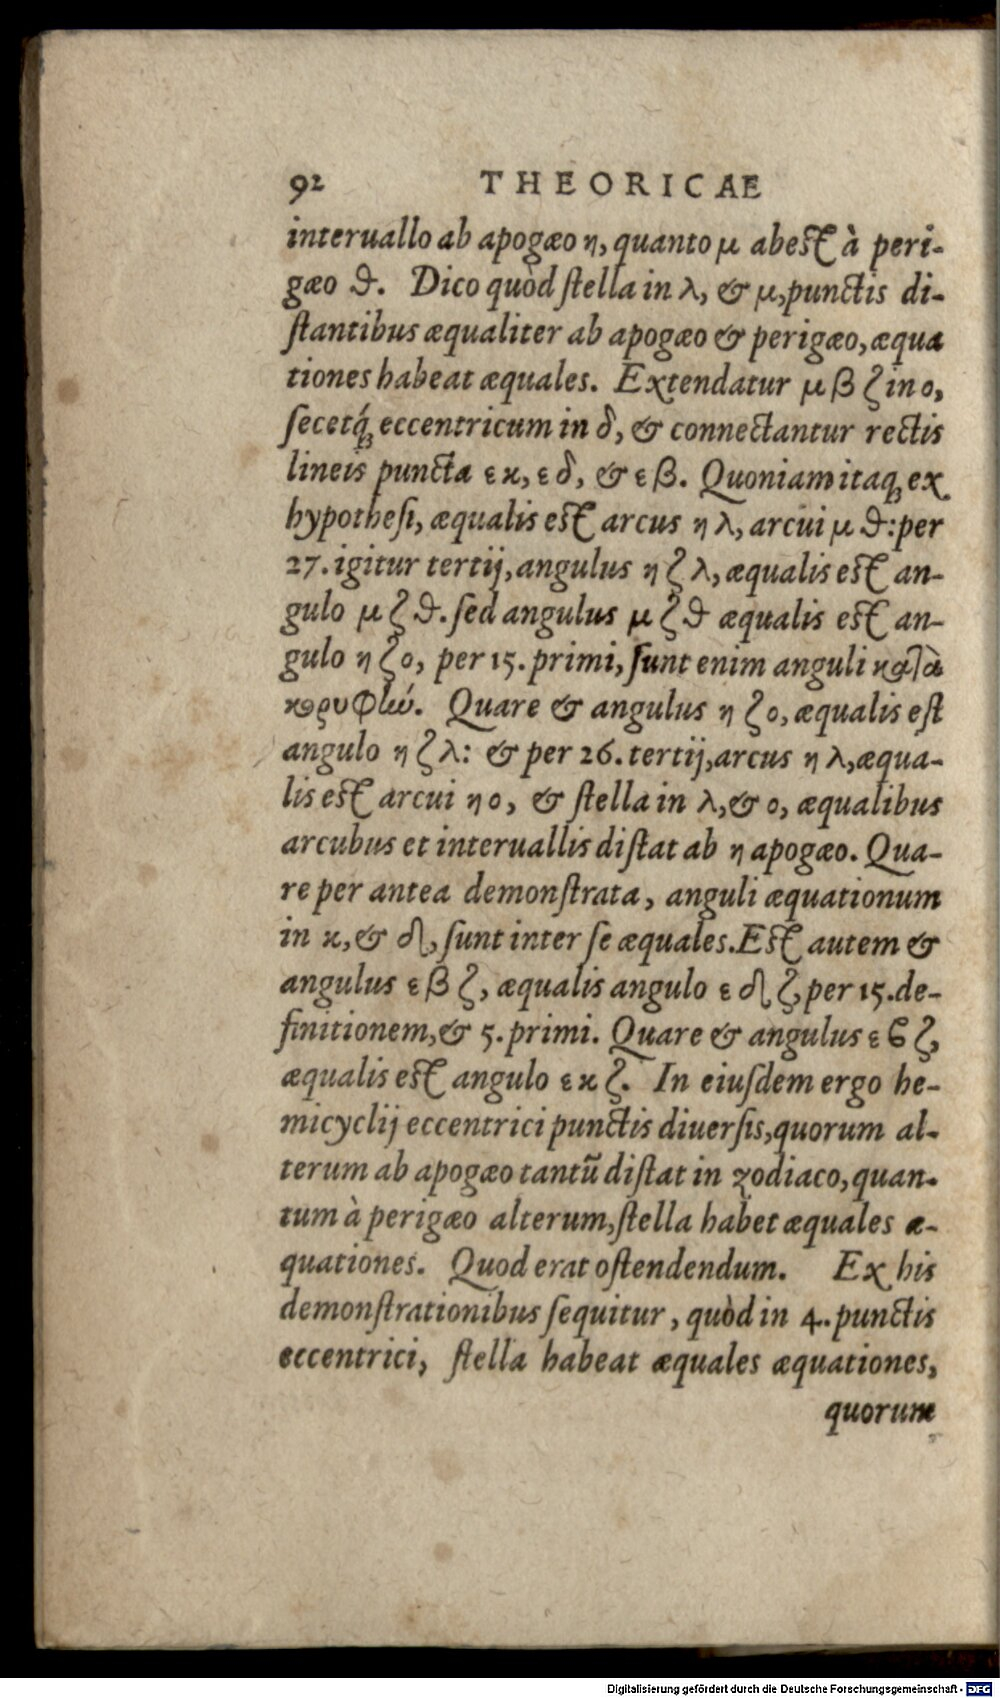 92 THEORICAE
interuallo ab apogæo η, quanto μ abest à peri-
gæo ϑ. Dico quòd stella in λ, & μ, punctis di-
stantibus æqualiter ab apogæo & perigæo, æqua
tiones habeat æquales. Extendatur μ β ζ in ο,
secetq́; eccentricum in δ, & connectantur rectis
lineis puncta ε κ, ε δ, & ε β. Quoniam itaq; ex
hypothesi, æqualis est arcus η λ, arcui μ ϑ: per
27. igitur tertij, angulus η ζ λ, æqualis est an-
gulo μ ζ ϑ. sed angulus μ ζ ϑ æqualis est an-
gulo η ζ ο, per 15. primi, sunt enim anguli κατὰ
κορυφὴν. Quare & angulus η ζ ο, æqualis est
angulo η ζ λ: & per 26. tertij, arcus η λ, æqua-
lis est arcui η ο, & stella in λ, & ο, æqualibus
arcubus et interuallis distat ab η apogæo. Qua-
re per antea demonstrata, anguli æquationum
in κ, & δ, sunt inter se æquales. Est autem &
angulus ε β ζ, æqualis angulo ε δ ζ, per 15. de-
finitionem, & 5. primi. Quare & angulus ε ϐ ζ,
æqualis est angulo ε κ ζ. In eiusdem ergo he-
micyclij eccentrici punctis diuersis, quorum al-
terum ab apogæo tantũ distat in zodiaco, quan-
tum à perigæo alterum, stella habet æquales æ-
quationes. Quod erat ostendendum. Ex his
demonstrationibus sequitur, quòd in 4. punctis
eccentrici, stella habeat æquales æquationes,
quorum
Digitalisierung gefördert durch die Deutsche Forschungsgemeinschaft - DFG